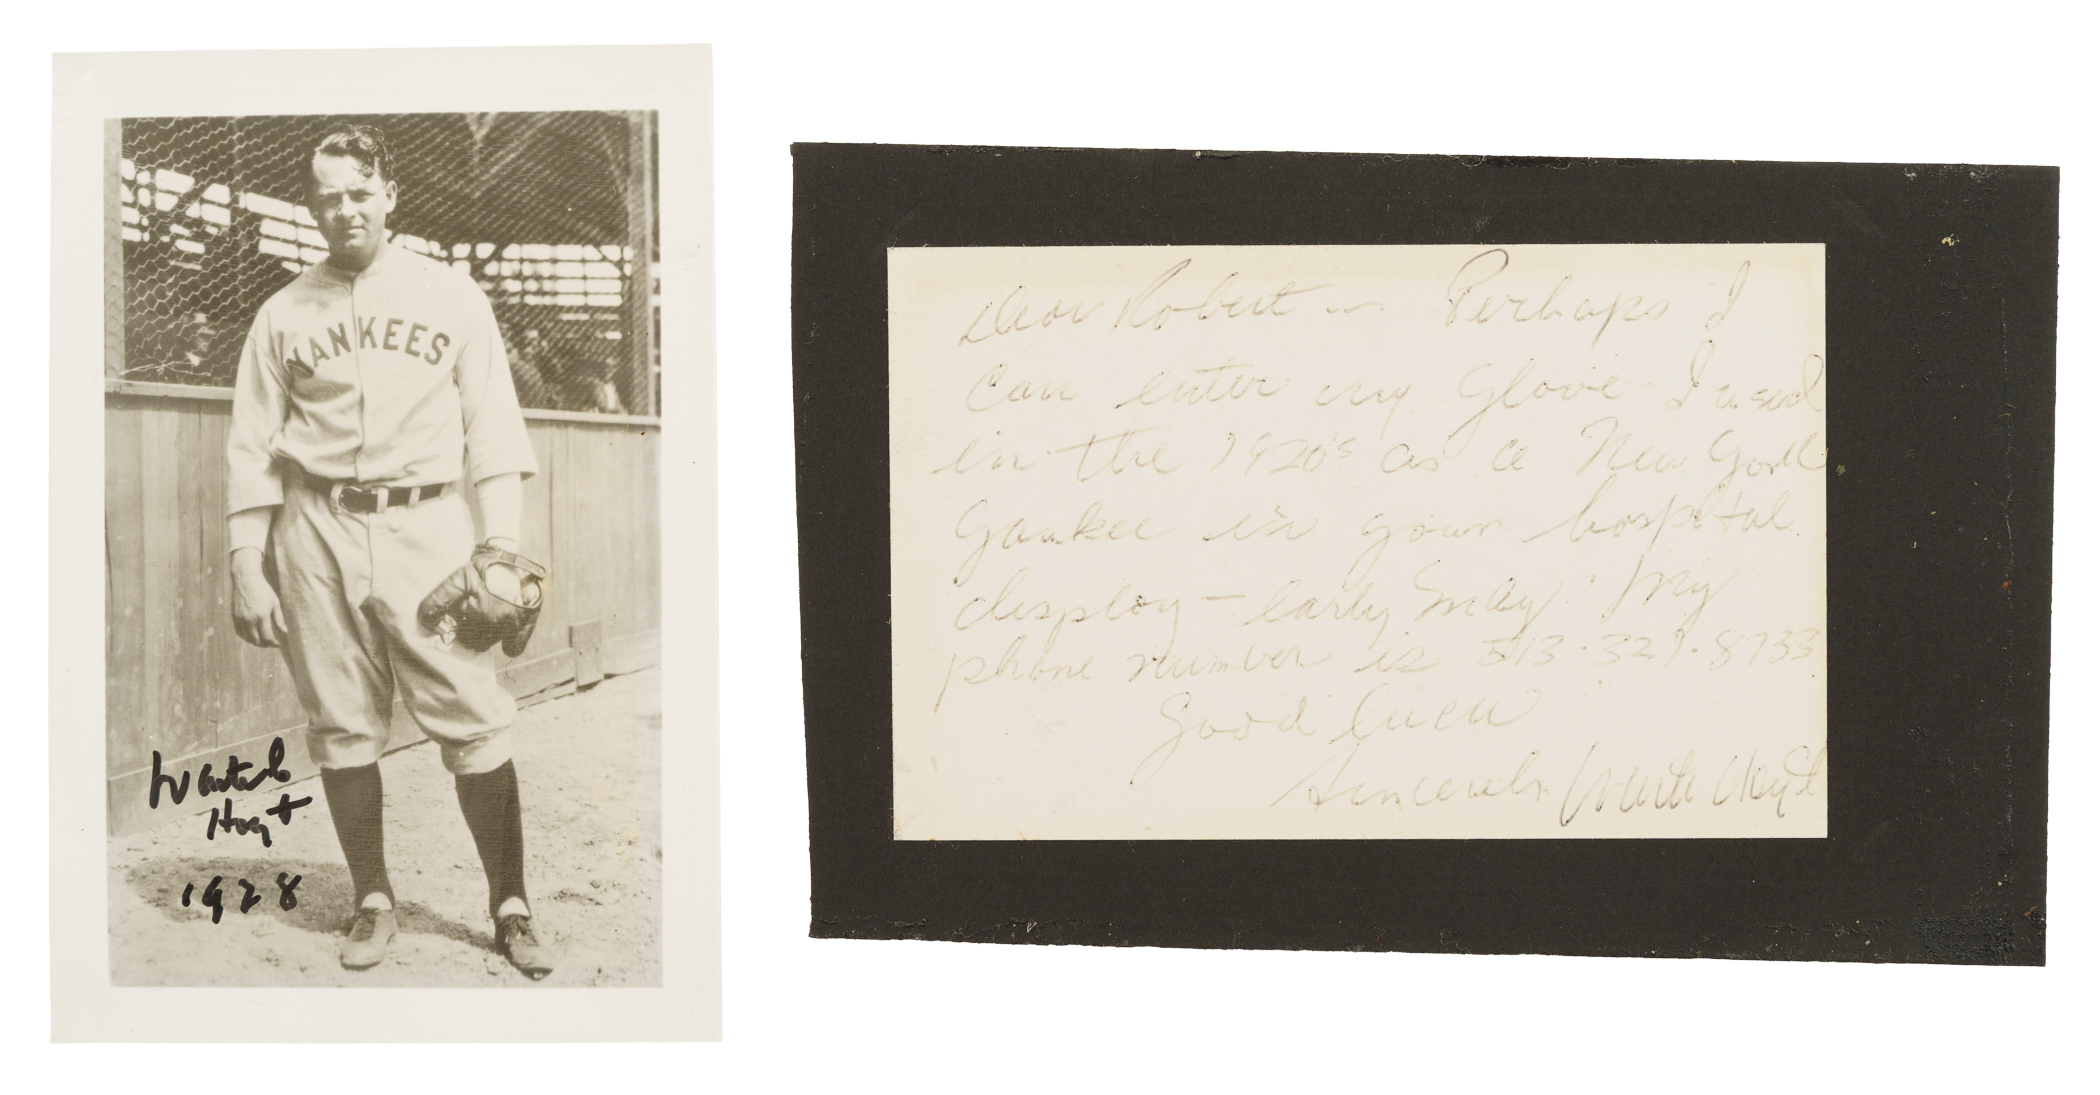 YANKEES
Waite
Hoyt
1928
Dear Robert — Perhaps I
can enter my Glove I used
in the 1920's as a New York
Yankee in your hospital
display — early May. My
phone number is 513-321-8733
Good luck
Sincerely Waite Hoyt